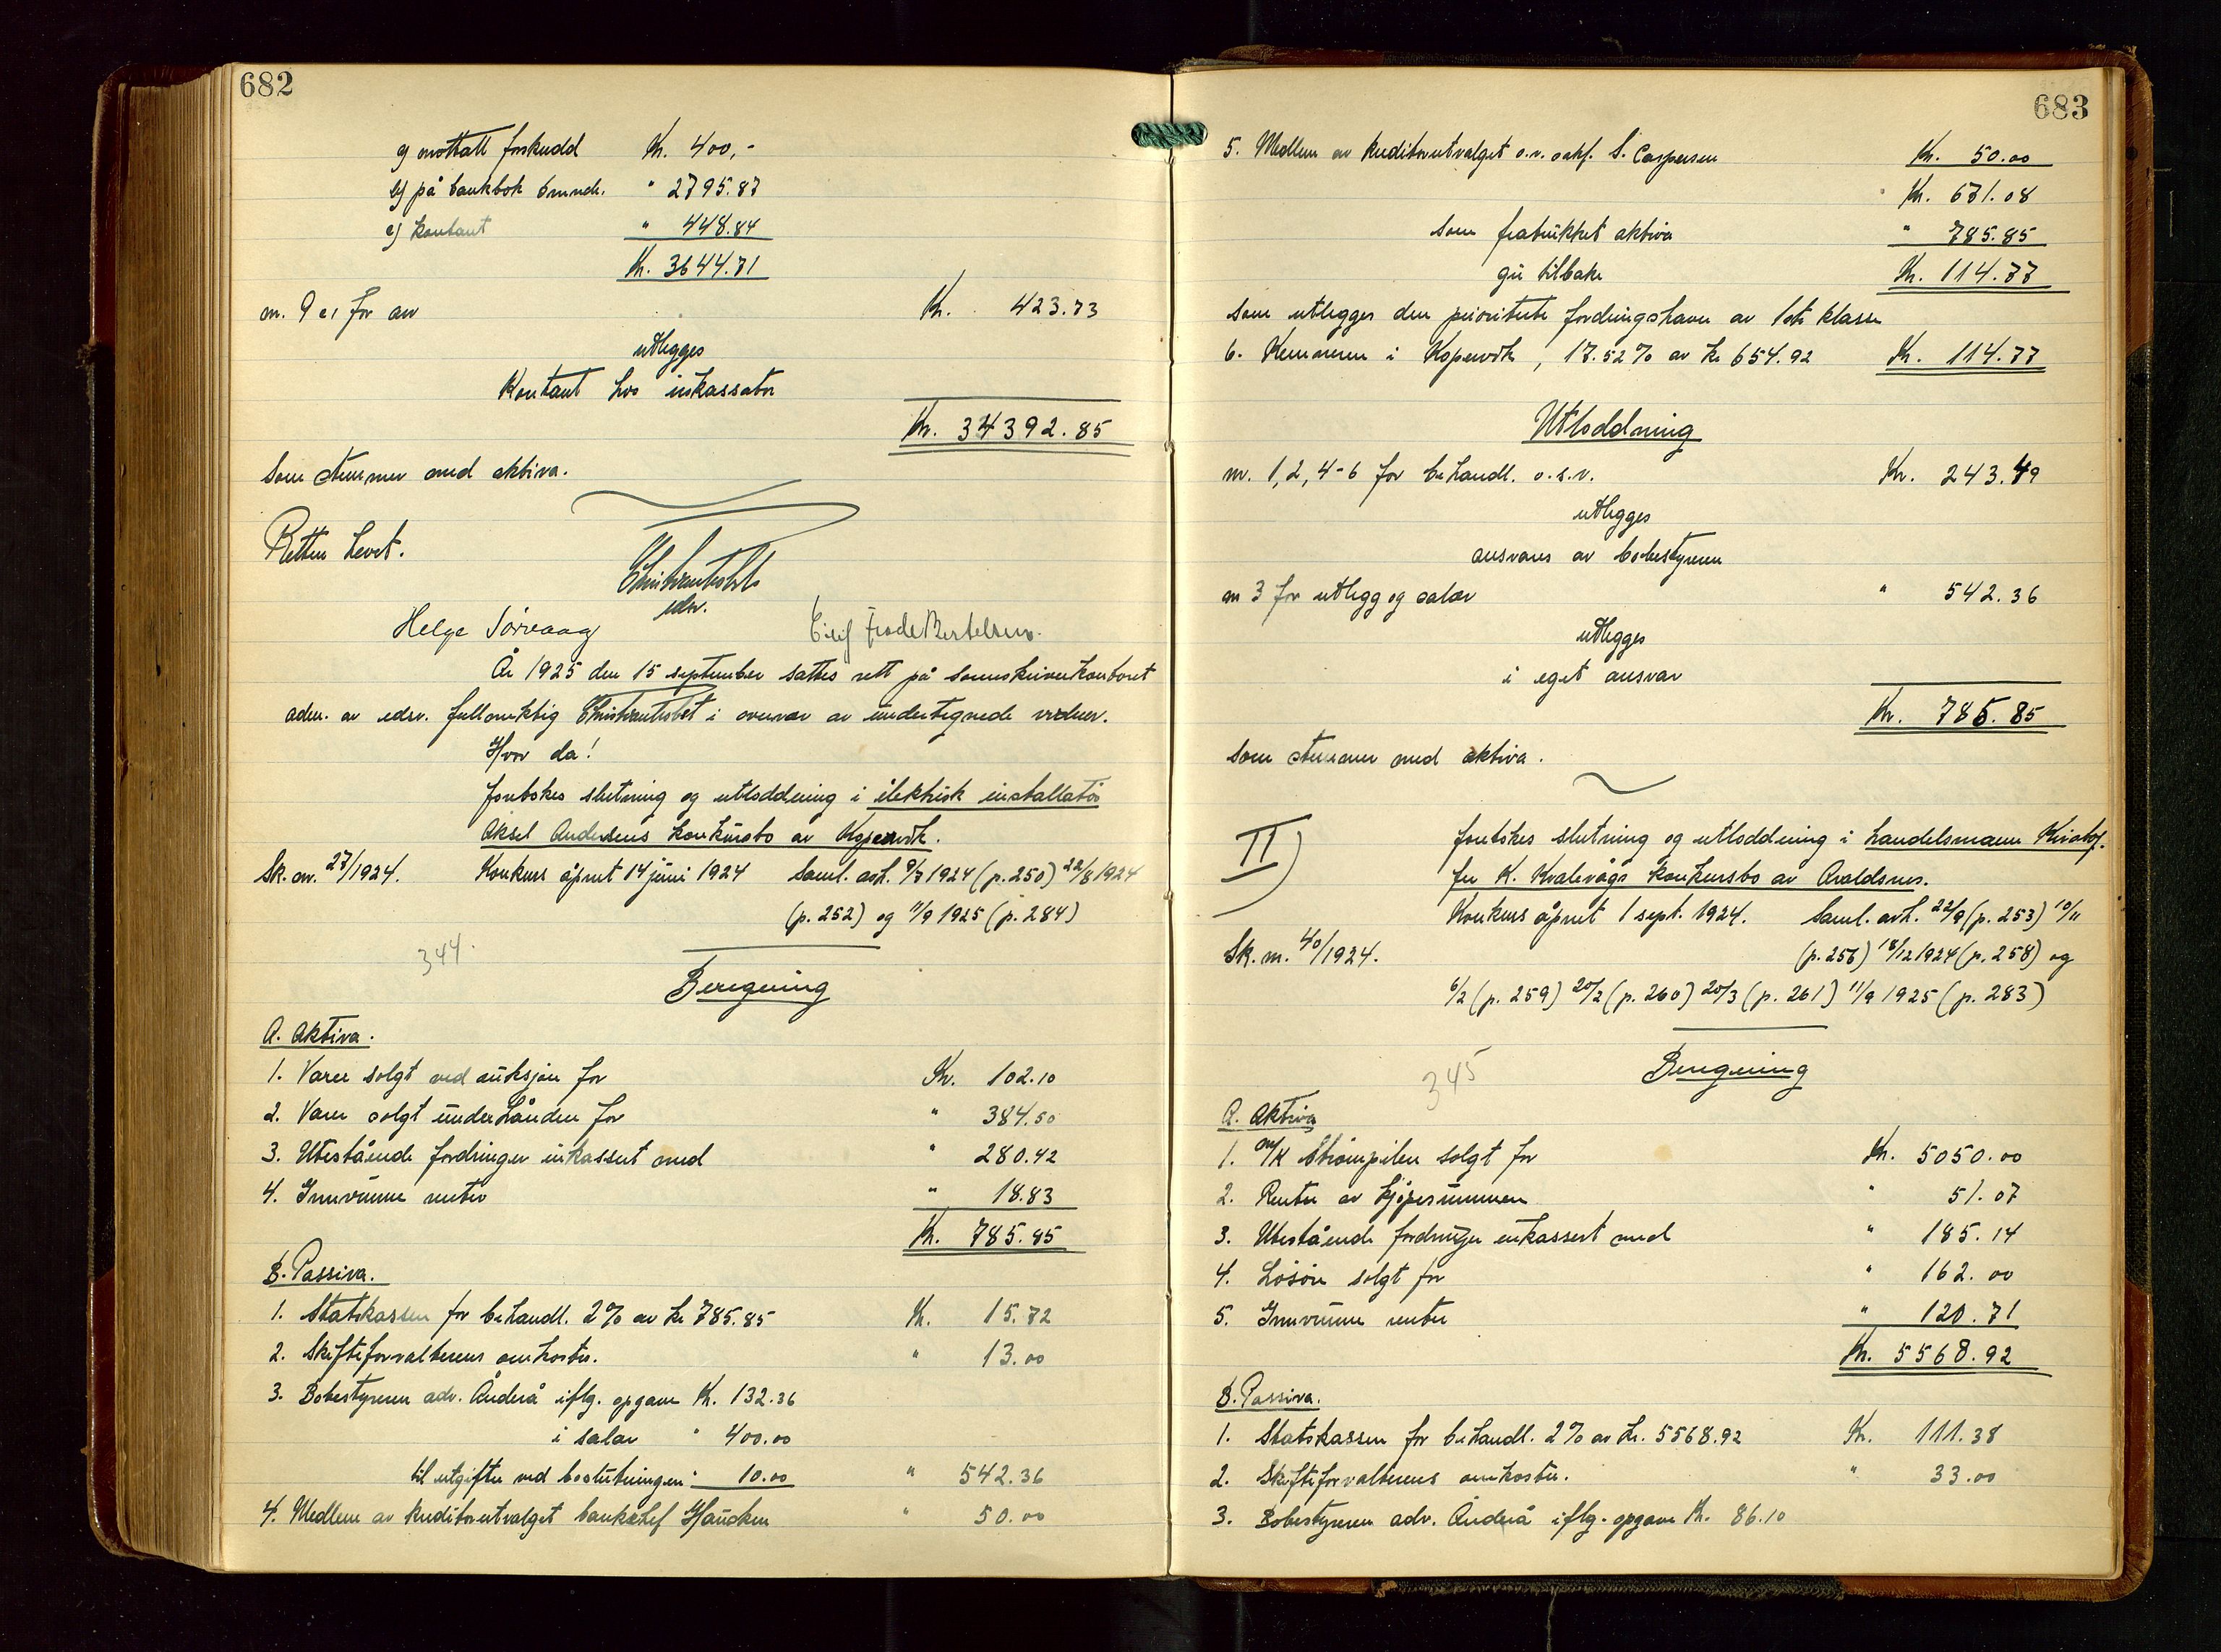 682
a) mottatt forskudd Kr. 400,-
b) på bankbok bmndr. " 2795.87
c) kontant " 448.84
Kr. 3644.71
nr. 9 c, for arv Kr. 423.73
utlegges
Kontant hos inkassator
Kr. 34392.85
som stemmer med aktiva.
Retten hevet.
Christian
edsv.
Helge Sørvaag Eilif Frode Bertelsen.
År 1925 den 15 september sattes rett på sorenskriverkontoret
adm. av edsv. fullmektig i overvær av undertegnede vidner.
Hvor da!
foretokes slutning og utloddning i elektrisk installatør
Aksel Andersens konkursbo av Kopervik.
Sk. nr. 27/1924. Konkurs åpnet 14 juni 1924 Saml. avh. 9/7 1924 (p. 250) 22/8 1924
(p. 252) og 11/9 1925 (p. 284)
344.
Beregning
A. Aktiva.
1. Varer solgt ved auksjon for Kr. 102.10
2. Varer solgt underhånden for " 384.50
3. Utestående fordringer inkassert med " 280.42
4. Innvunne renter " 18.83
Kr. 785.85
B. Passiva.
1. Statskassen for behandl. 2% av kr 785.85 Kr. 15.72
2. Skifteforvalterens omkostn. " 13.00
3. Bobestyreren adv. Änderå iflg. opgave Kr. 132.36
i salær " 400.00
til utgifter ved boslutningen " 10.00 " 542.36
4. Medlem av kreditorutvalget banksjef Haucken " 50.00
683
5. Medlem av kreditorutvalget o.r. sakf. S. Caspersen Kr. 50.00
Kr. 671.08
som fratrukket aktiva " 785.85
gir tilbake Kr. 114.77
som utlegges den prioriterte fordringshaver av 1ste klasse
6. Kemneren i Kopervik, 17.52% av kr 654.92 Kr. 114.77
Utloddning
nr. 1, 2, 4-6 for behandl. o.s.v. Kr. 243.49
utlegges
ansvares av bobestyreren
nr 3 for utlegg og salær " 542.36
utlegges
i eget ansvar
Kr. 785.85
som stemmer med aktiva.
II) foretokes slutning og utloddning i handelsmann Kristof-
fer K. Kvalevågs konkursbo av Avaldsnes.
Konkurs åpnet 1 sept. 1924. Saml. avh. 22/9 (p. 253) 10/11
Sk. nr. 40/1924. (p. 256) 18/12 1924 (p. 258) og
6/2 (p. 259) 20/2 (p. 260) 20/3 (p. 261) 11/9 1925 (p. 283)
345
Beregning
A. Aktiva
1. m/k Strömpilen solgt for Kr. 5050.00
2. Renter av kjøpesummen " 51.07
3. Utestående fordringer inkassert med " 185.14
4. Løsøre solgt for " 162.00
5. Innvunne renter " 120.71
Kr. 5568.92
B. Passiva.
1. Statskassen for behandl. 2% av kr. 5568.92 Kr. 111.38
2. Skifteforvalterens omkostn. " 33.00
3. Bobestyreren adv. Änderå iflg. opgave Kr. 86.10